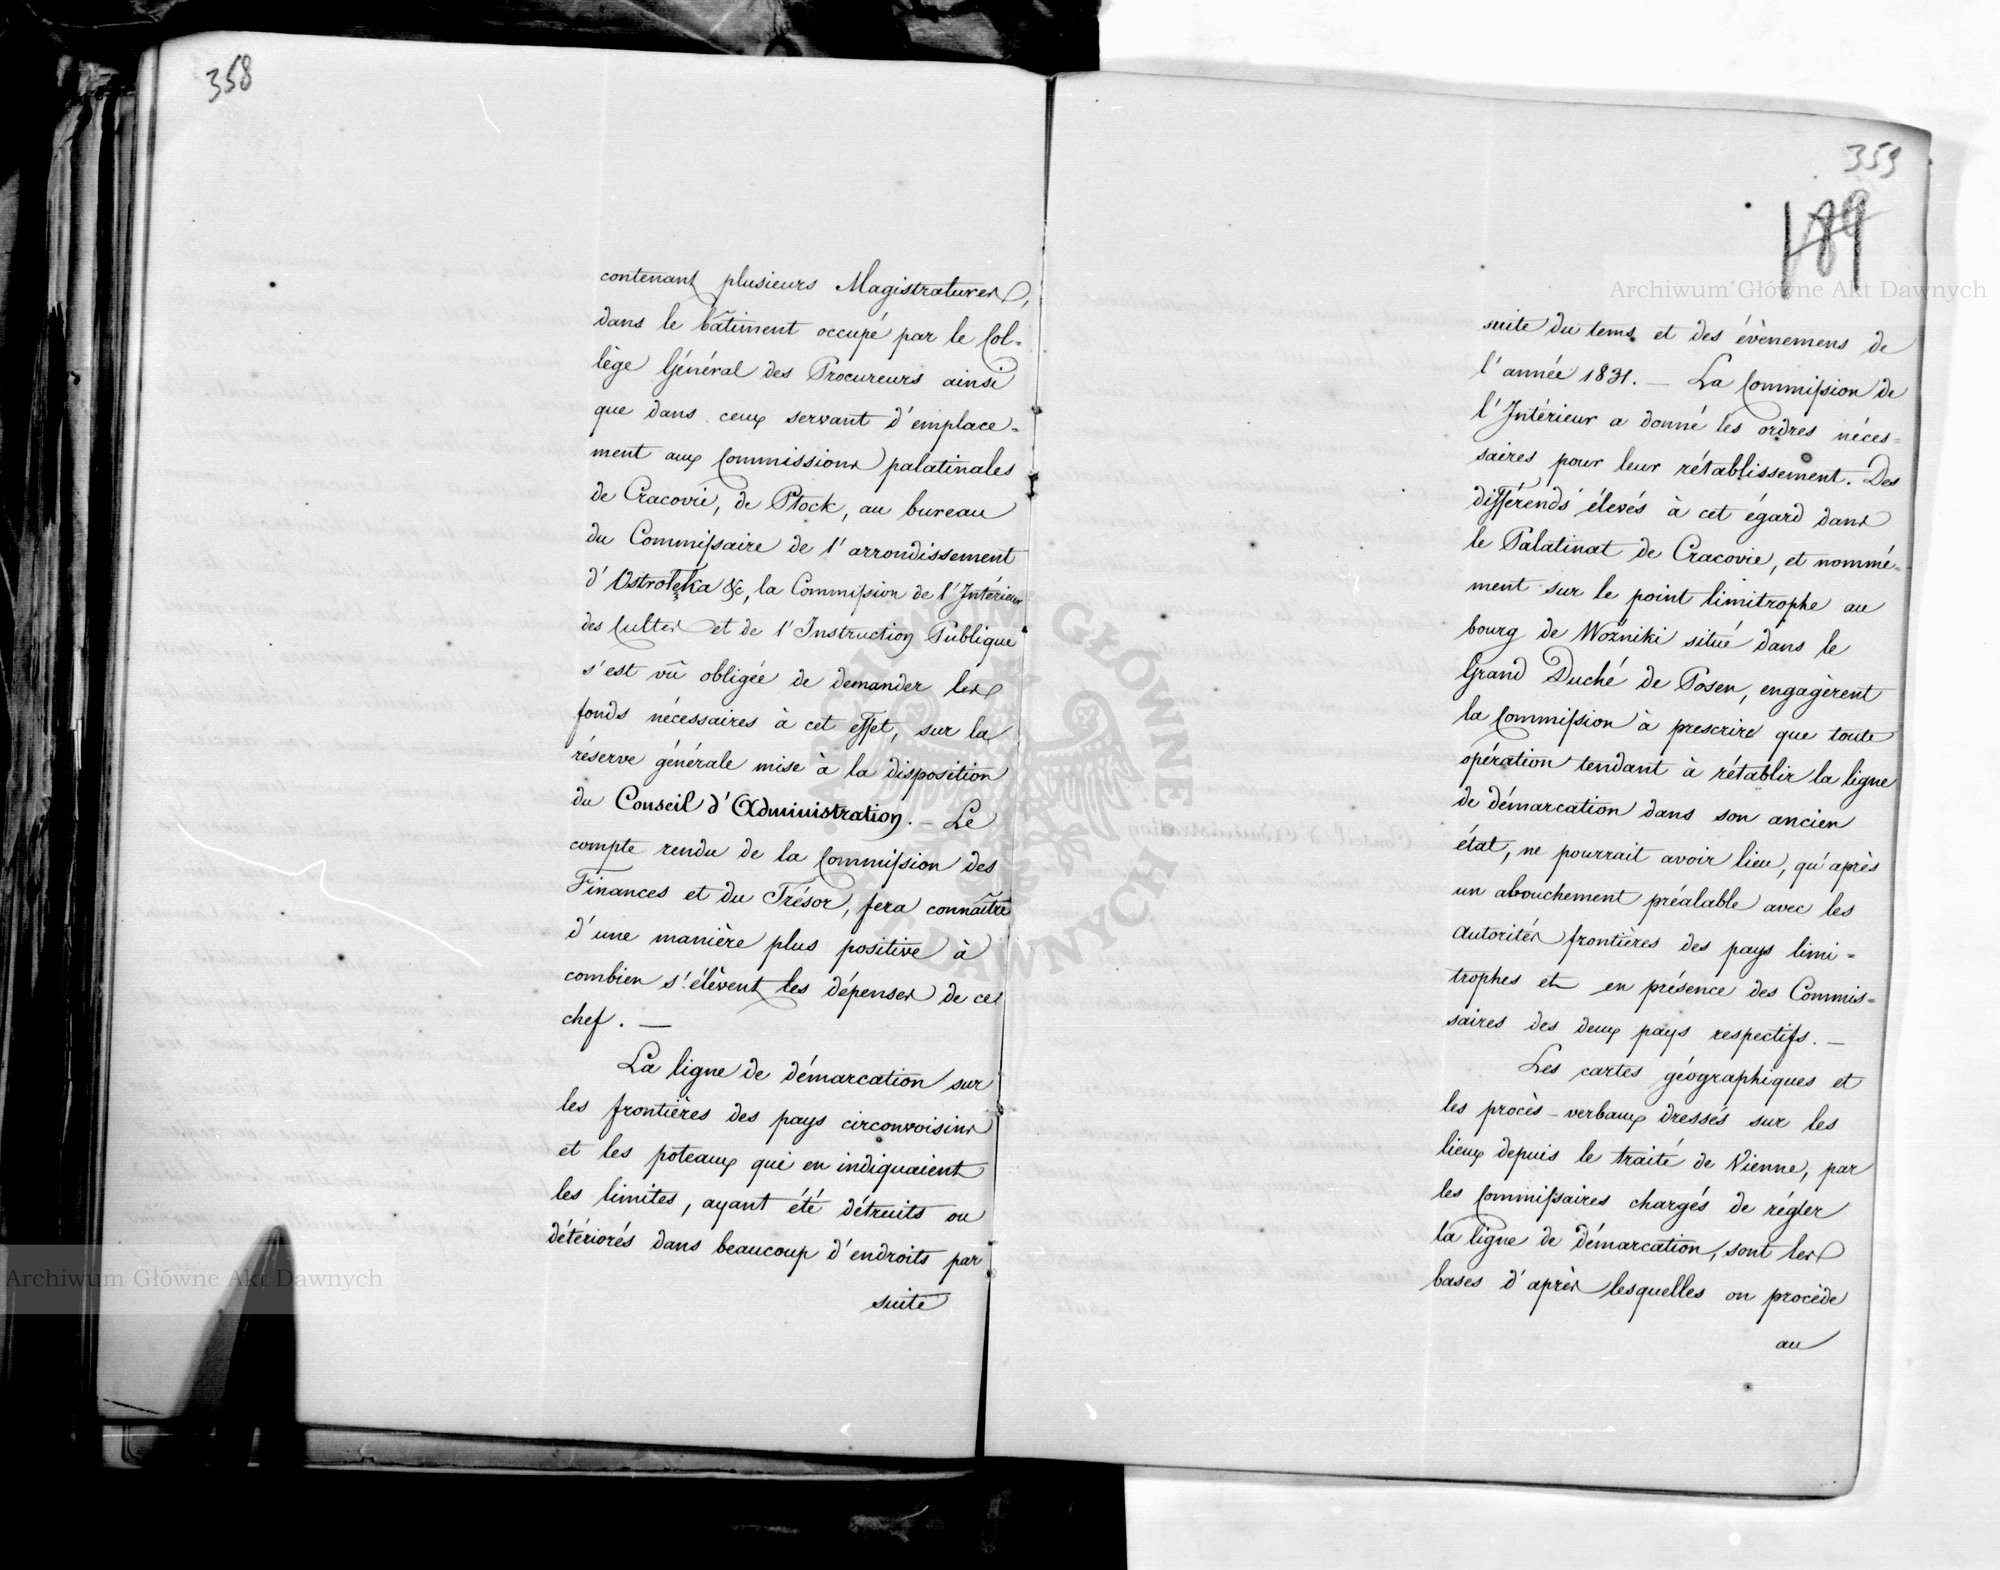 358
contenant plusieurs Magistratures,
dans le bâtiment occupé par le Col=
lège Général des Procureurs ainsi
que dans ceux servant d'emplace=
ment aux Commissions palatinales
de Cracovie, de Płock, au bureau
du Commissaire de l'arrondissement
d'Ostrołęka &c, la Commission de l'Intérieur
des Cultes et de l'Instruction Publique
s'est vû obligée de demander les
fonds nécessaires à cet effet, sur la
réserve générale mise à la disposition
du Conseil d'Administration. — Le
compte rendu de la Commission des
Finances et du Trésor, fera connaître
d'une manière plus positive à
combien s'élèvent les dépenses de ce
chef. —
La ligne de démarcation sur
les frontières des pays circonvoisins
et les poteaux qui en indiquaient
les limites, ayant été détruits ou
détériorés dans beaucoup d'endroits par
suite
359
189
suite du tems et des évènemens de
l'année 1831. — La Commission de
l'Intérieur a donné les ordres néces=
saires pour leur rétablissement. Des
différends élevés à cet égard dans
le Palatinat de Cracovie, et nommé=
ment sur le point limitrophe au
bourg de Woźniki situé dans le
Grand Duché de Posen, engagèrent
la Commission à prescrire que toute
opération tendant à rétablir la ligne
de démarcation dans son ancien
état, ne pourrait avoir lieu, qu'après
un abouchement préalable avec les
Autorités frontières des pays limi=
trophes et en présence des Commis=
saires des deux pays respectifs. —
Les cartes géographiques et
les procès-verbaux dressés sur les
lieux depuis le traité de Vienne, par
les Commissaires chargés de régler
la ligne de démarcation, sont les
bases d'après lesquelles on procède
au
Archiwum Główne Akt Dawnych
Archiwum Główne Akt Dawnych
ARCHIWUM GŁÓWNE AKT DAWNYCH